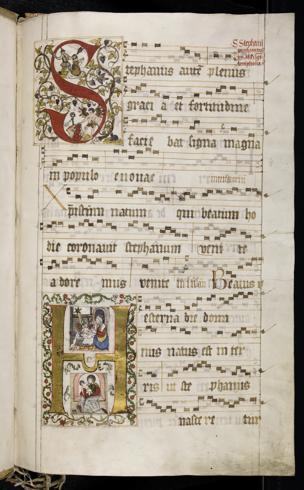 S Stephani
Stephanus aute plenus
gracia et fortitudine
facie bat signa magna
in populo euouae
Xpistum natum qui beatum ho
die coronauit stephanum veni te
adore mus venite Beatus v
Hesterna die domi
nus natus est in ter
ris ut ste phanus
nasceretur